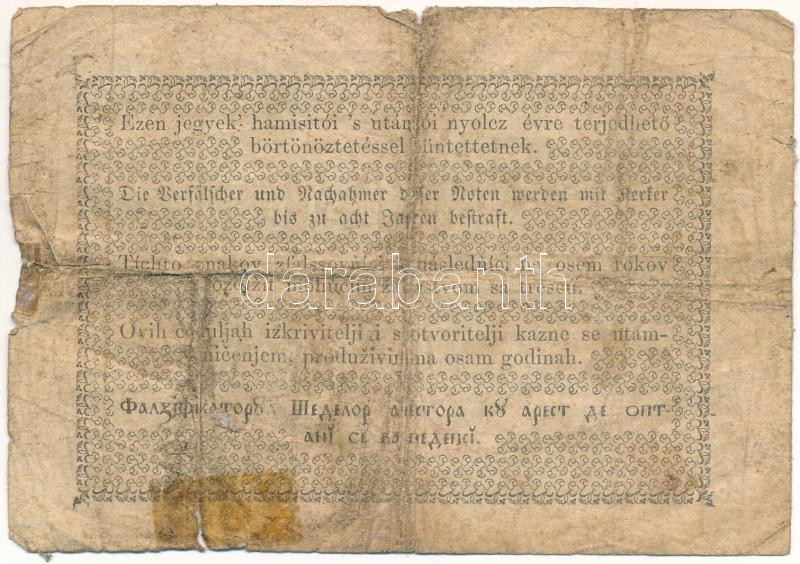 Ezen jegyek' hamisitói 's utánzói nyolcz évre terjedhető
börtönöztetéssel büntettetnek.
Die Verfälscher und Nachahmer dieser Noten werden mit Kerker
bis zu acht Jahren bestraft.
Tichto znakov falssovňici následňíci do osem rokov
žalárstvom sa trescú.
Ovih ceduljah izkrivitelji i stvoritelji kazne se utam-
ničenjem, produživim na osam godinah.
Фалзіфікаторꙋл Шеделор ачестора кꙋ арест де опт
анї се ва педепсі.
darabanth